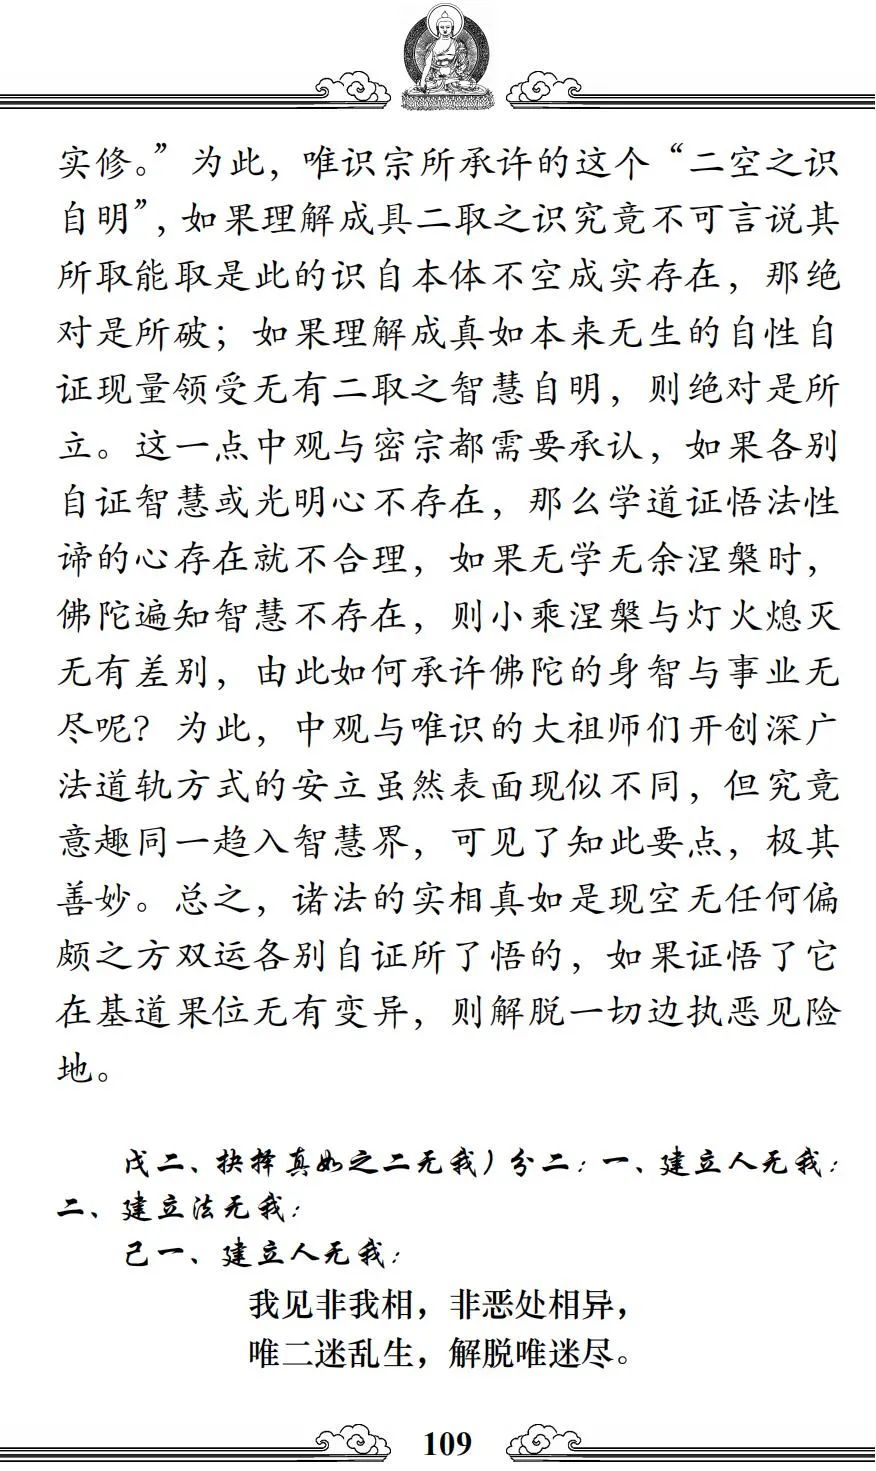 实修。”为此，唯识宗所承许的这个“二空之识
自明”，如果理解成具二取之识究竟不可言说其
所取能取是此的识自本体不空成实存在，那绝
对是所破；如果理解成真如本来无生的自性自
证现量领受无有二取之智慧自明，则绝对是所
立。这一点中观与密宗都需要承认，如果各别
自证智慧或光明心不存在，那么学道证悟法性
谛的心存在就不合理，如果无学无余涅槃时，
佛陀遍知智慧不存在，则小乘涅槃与灯火熄灭
无有差别，由此如何承许佛陀的身智与事业无
尽呢？为此，中观与唯识的大祖师们开创深广
法道轨方式的安立虽然表面现似不同，但究竟
意趣同一趋入智慧界，可见了知此要点，极其
善妙。总之，诸法的实相真如是现空无任何偏
颇之方双运各别自证所了悟的，如果证悟了它
在基道果位无有变异，则解脱一切边执恶见险
地。
戊二、抉择真如之二无我）分二：一、建立人无我；
二、建立法无我；
己一、建立人无我：
我见非我相，非恶处相异，
唯二迷乱生，解脱唯迷尽。
109